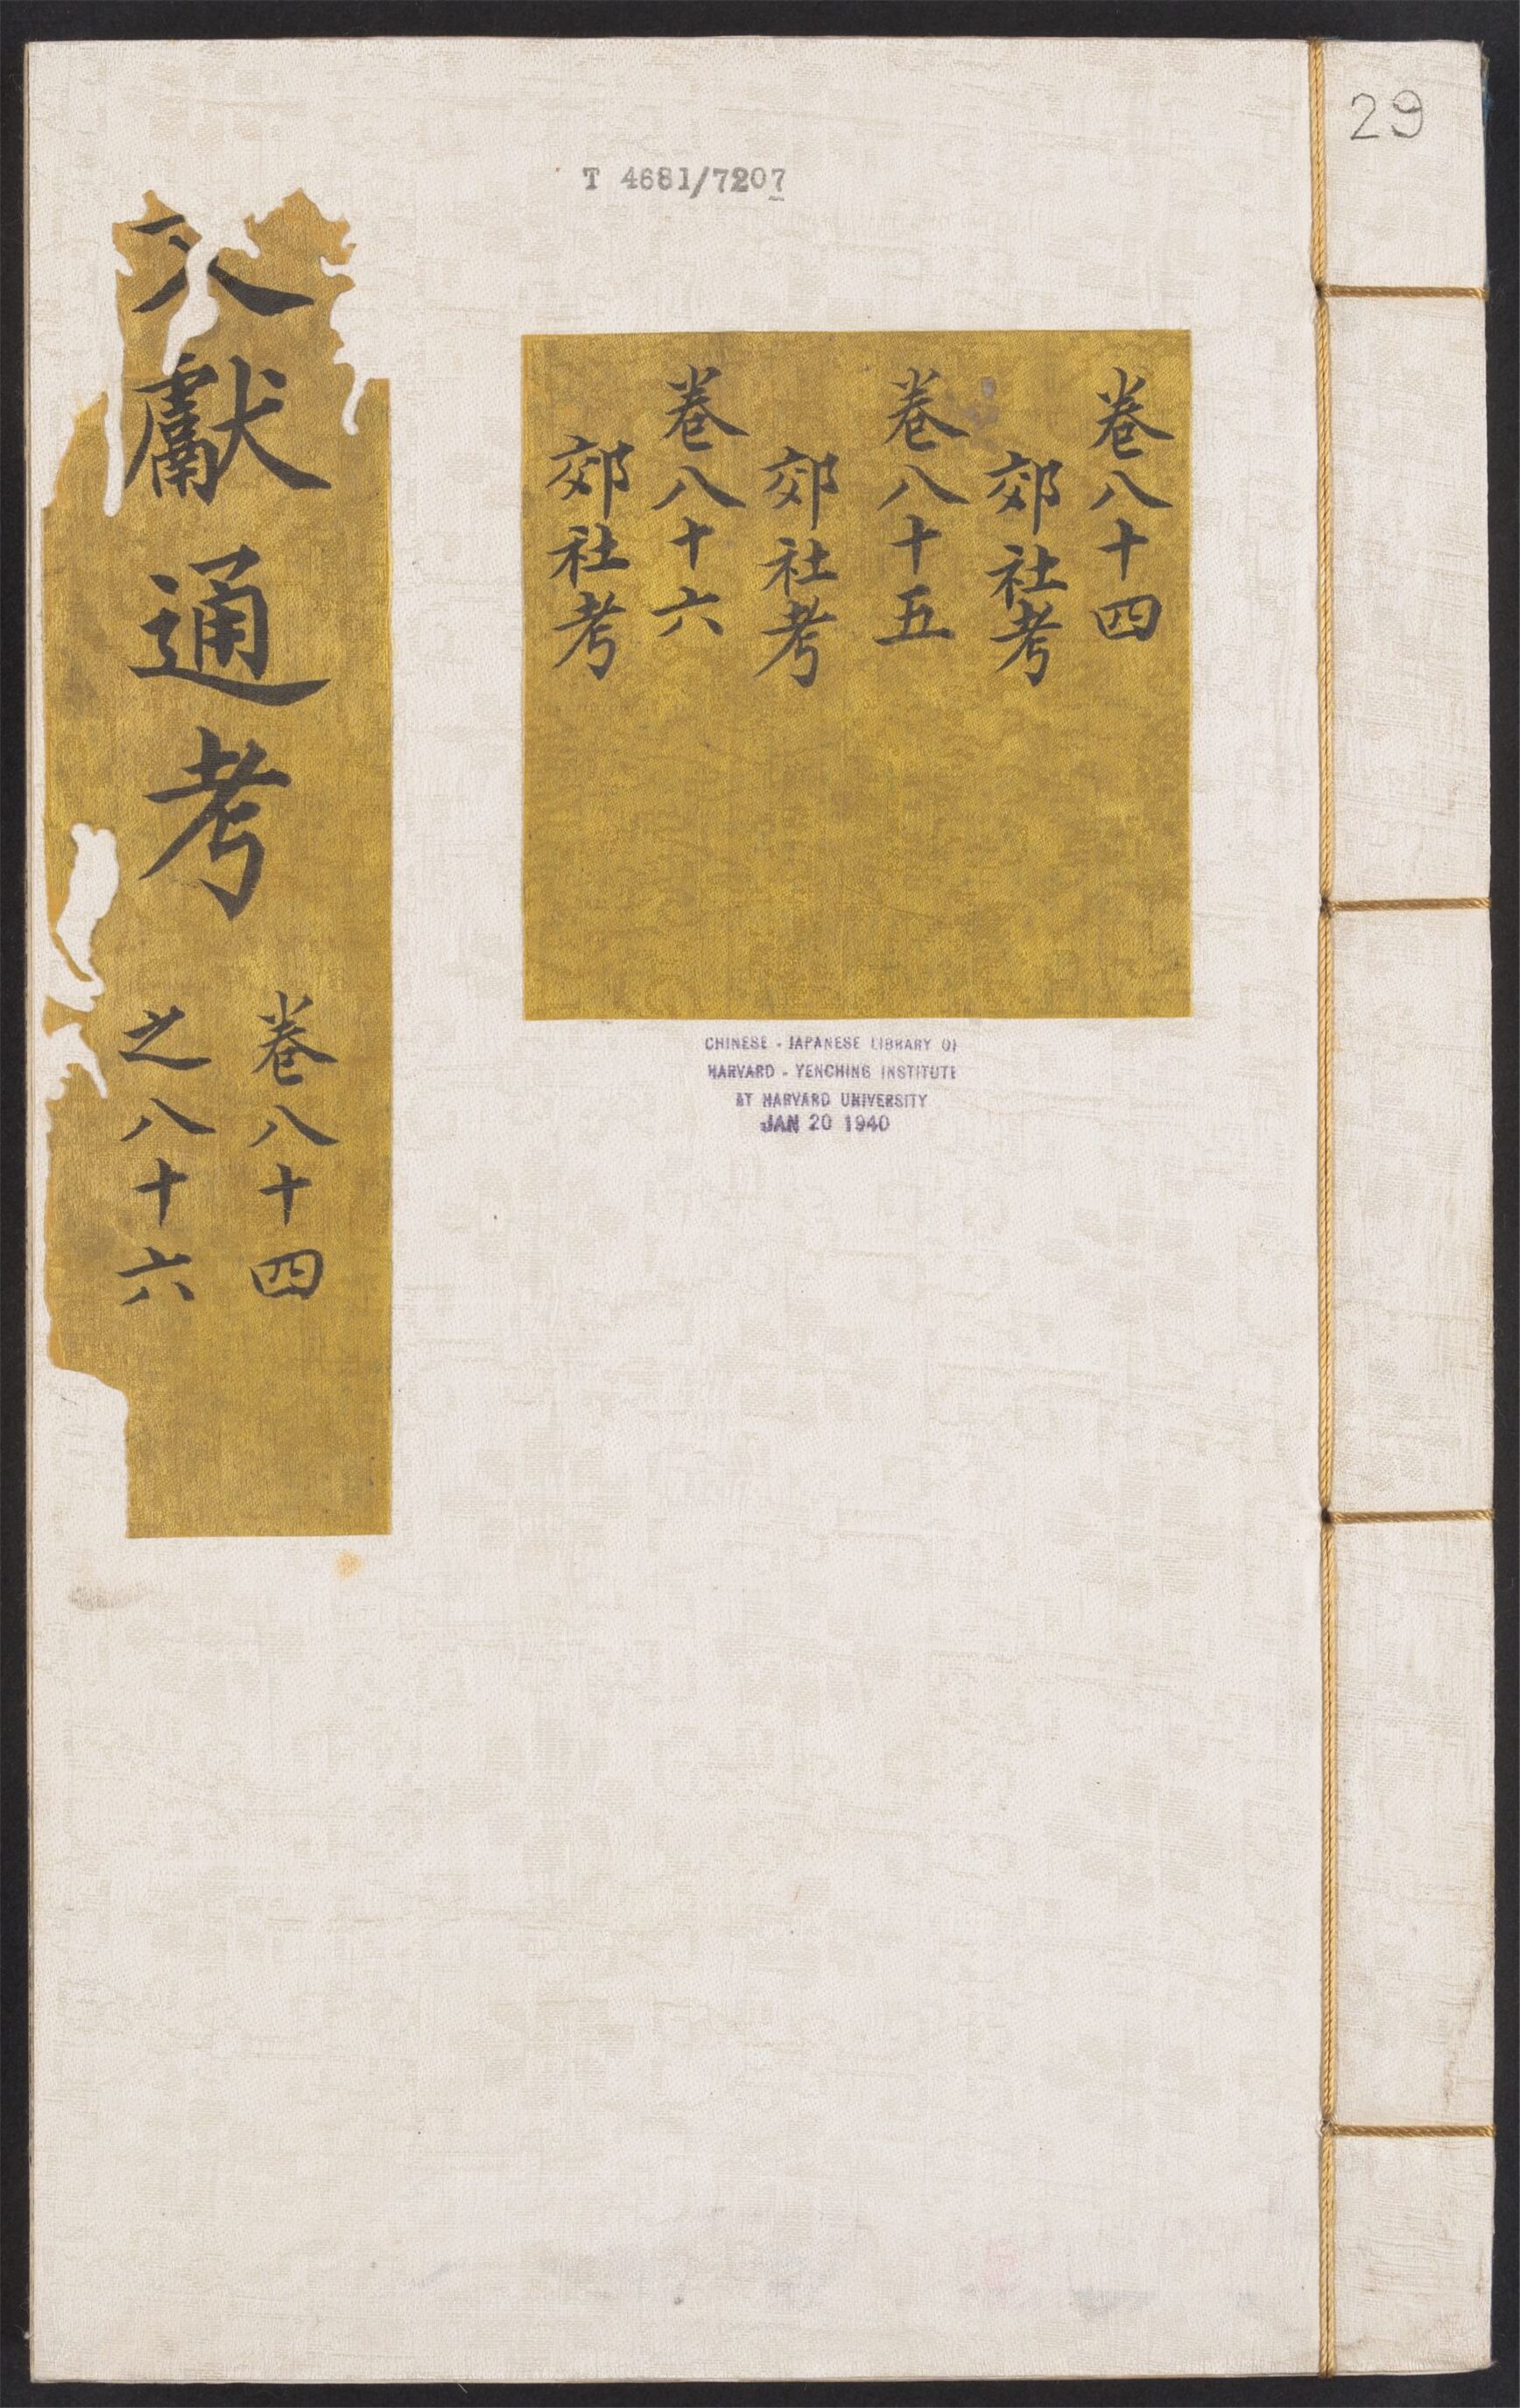 29
T 4681/7207
卷八十四
郊社考
卷八十五
郊社考
卷八十六
郊社考
CHINESE - JAPANESE LIBRARY OF
HARVARD - YENCHING INSTITUTE
AT HARVARD UNIVERSITY
JAN 20 1940
文獻通考
卷八十四
之八十六